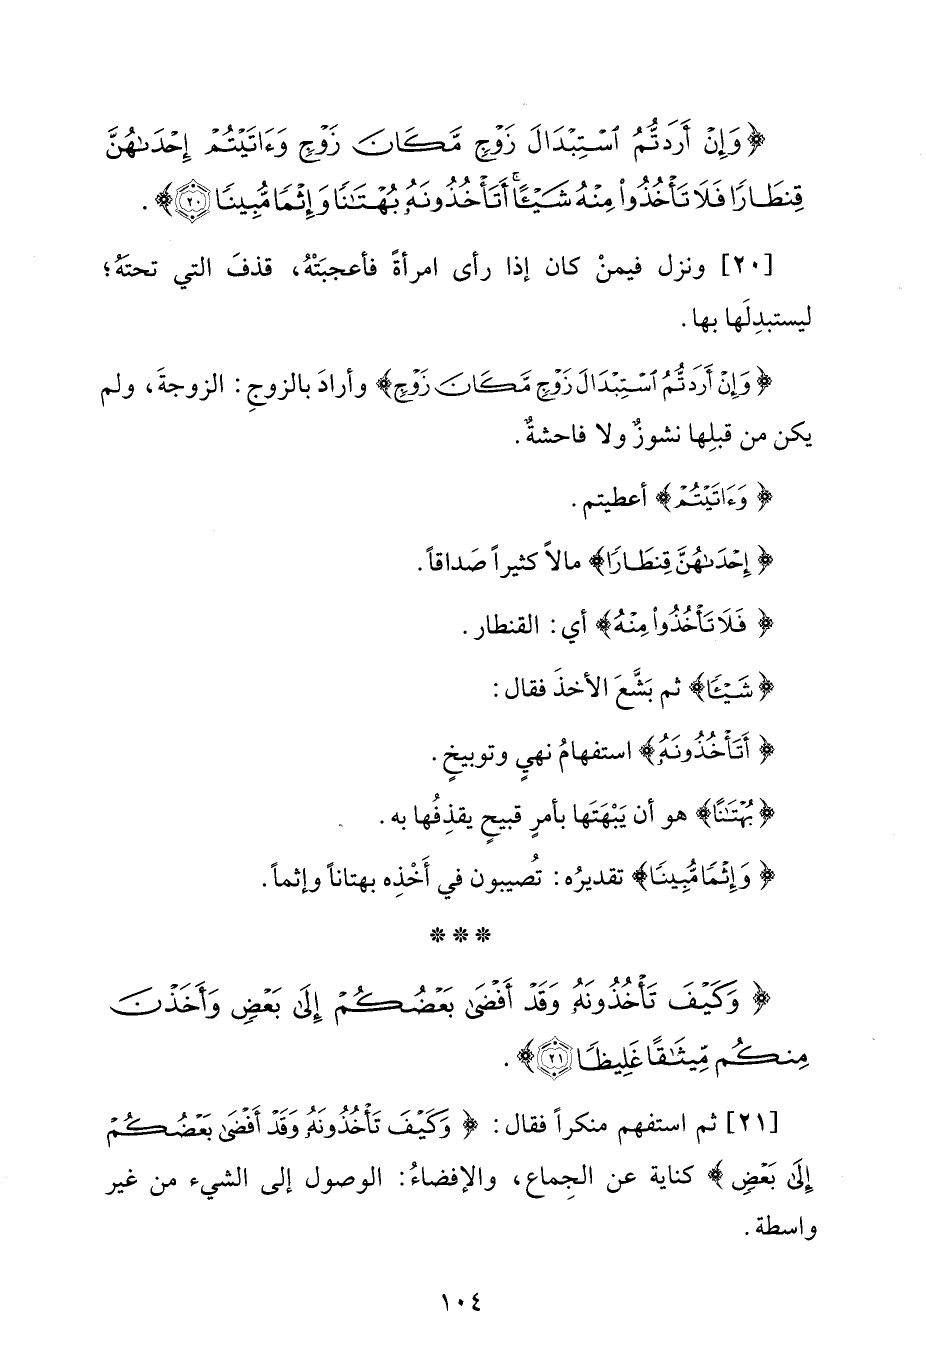 ﴿ وَإِنْ أَرَدتُّمُ ٱسْتِبْدَالَ زَوْجٍ مَّكَانَ زَوْجٍ وَءَاتَيْتُمْ إِحْدَىٰهُنَّ
قِنطَارًا فَلَا تَأْخُذُوا۟ مِنْهُ شَيْـًٔا ۚ أَتَأْخُذُونَهُۥ بُهْتَـٰنًا وَإِثْمًا مُّبِينًا ٢٠﴾ .
[٢٠] ونزل فيمنْ كان إذا رأى امرأةً فأعجبَتْهُ، قذفَ التي تحتَهُ؛
ليستبدِلَها بها.
﴿ وَإِنْ أَرَدتُّمُ ٱسْتِبْدَالَ زَوْجٍ مَّكَانَ زَوْجٍ﴾ وأرادَ بالزوجِ: الزوجةَ، ولم
يكن من قبلِها نشوزٌ ولا فاحشةٌ.
﴿ وَءَاتَيْتُمْ﴾ أعطيتم.
﴿ إِحْدَىٰهُنَّ قِنطَارًا﴾ مالاً كثيراً صَداقاً.
﴿ فَلَا تَأْخُذُوا۟ مِنْهُ﴾ أي: القنطار.
﴿ شَيْـًٔا﴾ ثم بَشَّعَ الأخذَ فقال:
﴿ أَتَأْخُذُونَهُۥ﴾ استفهامُ نهيٍ وتوبيخٍ.
﴿ بُهْتَـٰنًا﴾ هو أن يَبْهَتَها بأمرٍ قبيحٍ يقذِفُها به.
﴿ وَإِثْمًا مُّبِينًا﴾ تقديرُه: تُصيبون في أَخْذِه بهتاناً وإثماً.
* * *
﴿ وَكَيْفَ تَأْخُذُونَهُۥ وَقَدْ أَفْضَىٰ بَعْضُكُمْ إِلَىٰ بَعْضٍ وَأَخَذْنَ
مِنكُم مِّيثَـٰقًا غَلِيظًا ٢١﴾ .
[٢١] ثم استفهم منكراً فقال: ﴿ وَكَيْفَ تَأْخُذُونَهُۥ وَقَدْ أَفْضَىٰ بَعْضُكُمْ
إِلَىٰ بَعْضٍ ﴾ كناية عن الجِماع، والإفضاءُ: الوصول إلى الشيء من غير
واسطة.
١٠٤